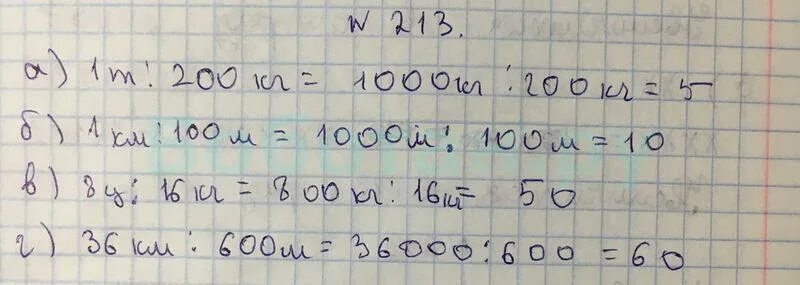 N 213.
а) 1т : 200 кг = 1000кг : 200 кг = 5
б) 1 км : 100 м = 1000м : 100м = 10
в) 8ц : 16 кг = 800 кг : 16кг = 50
г) 36 км : 600м = 36000 : 600 = 60